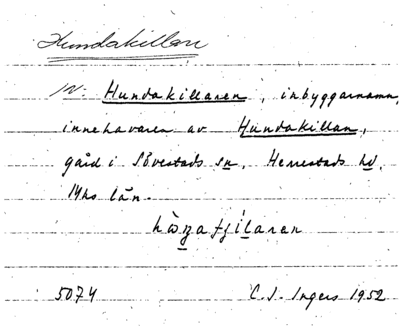 Hundakillan
N: Hundakillaren, inbyggarnamn,
innehavaren av Hundakillan,
gård i Sövestads sn, Herrestads hd,
Mhs län.
5074 C.I. Ingers 1952